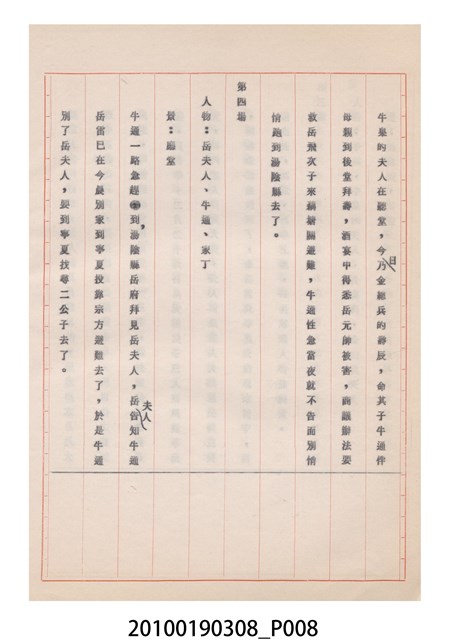 牛皋的夫人在廳堂，今日乃金總兵的壽辰，命其子牛通伴
母親到後堂拜壽，酒宴中得悉岳元帥被害，商議辦法要
救岳飛次子來藕塘關避難，牛通性急當夜就不告而別悄
悄跑到湯陰縣去了。
第四場
人物：岳夫人、牛通、家丁
景：廳堂
牛通一路急趕，到湯陰縣岳府拜見岳夫人，岳夫人告知牛通
岳雷已在今晨別家到寧夏投靠宗方避難去了，於是牛通
別了岳夫人，要到寧夏找尋二公子去了。
20100190308_P008